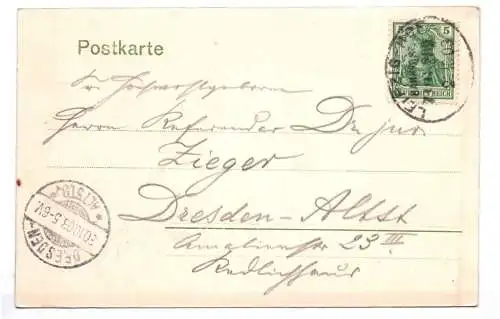 Postkarte
5
LEIPZIG
Sr. Hochwohlgeboren
Herrn Referendar Dr. jur.
Zieger
Dresden-Altst
Amalienstr 23 III
Redlichhaus
DRESDEN-
ALTST.
5-6V.